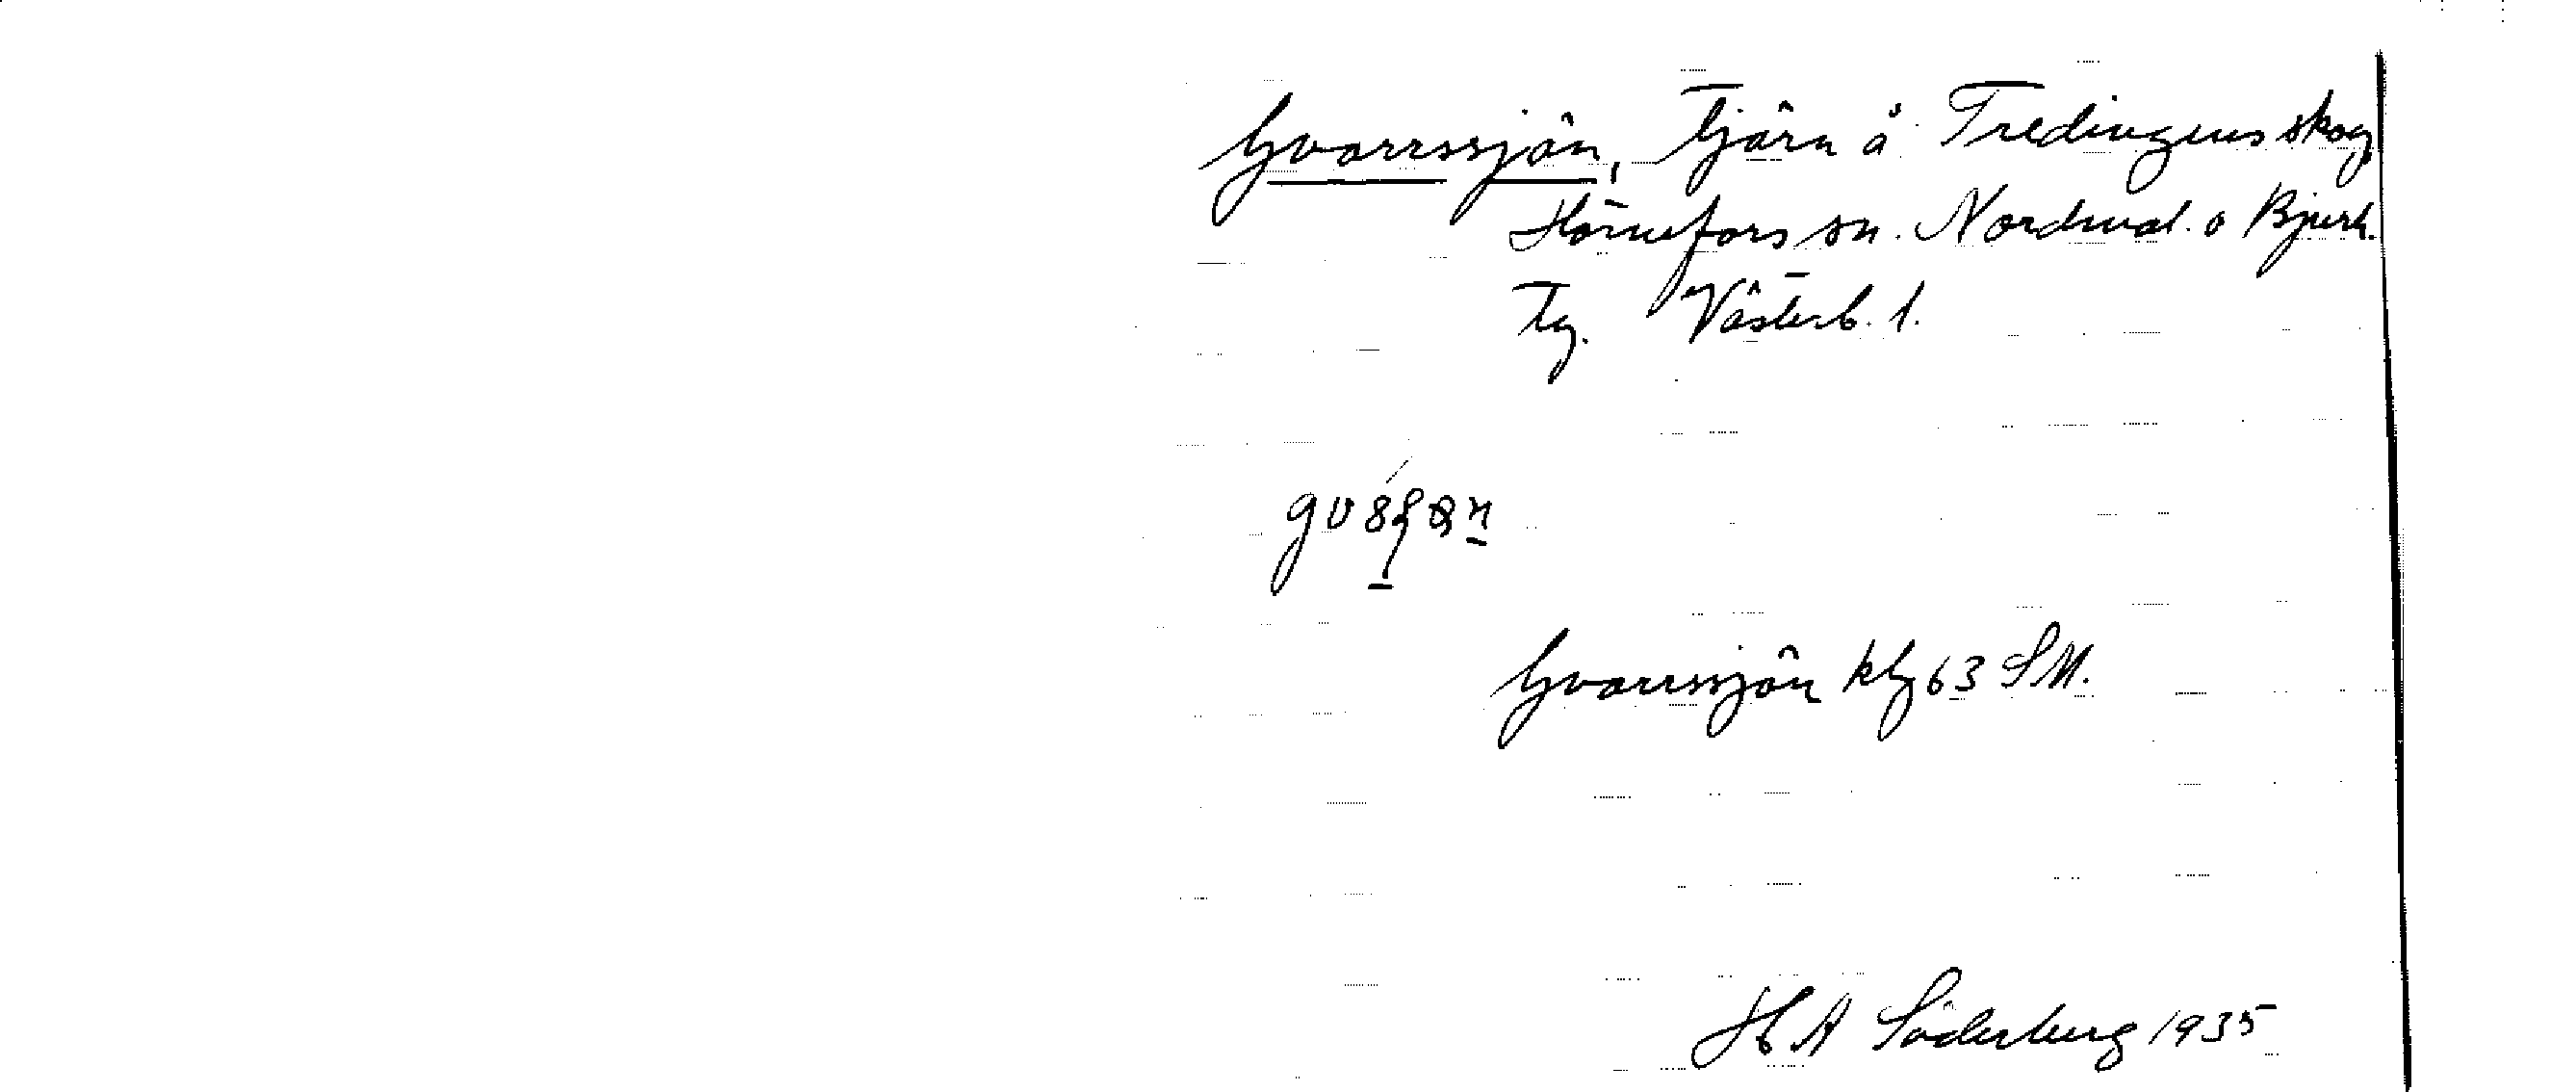 Gvarrssjön, Tjärn å Tredingens skog
Hörnefors sn. Nordmal. o Bjurh.
Tg. Västerb. l.
Gvarrssjön kbg 63 SM.
H A Söderberg 1935